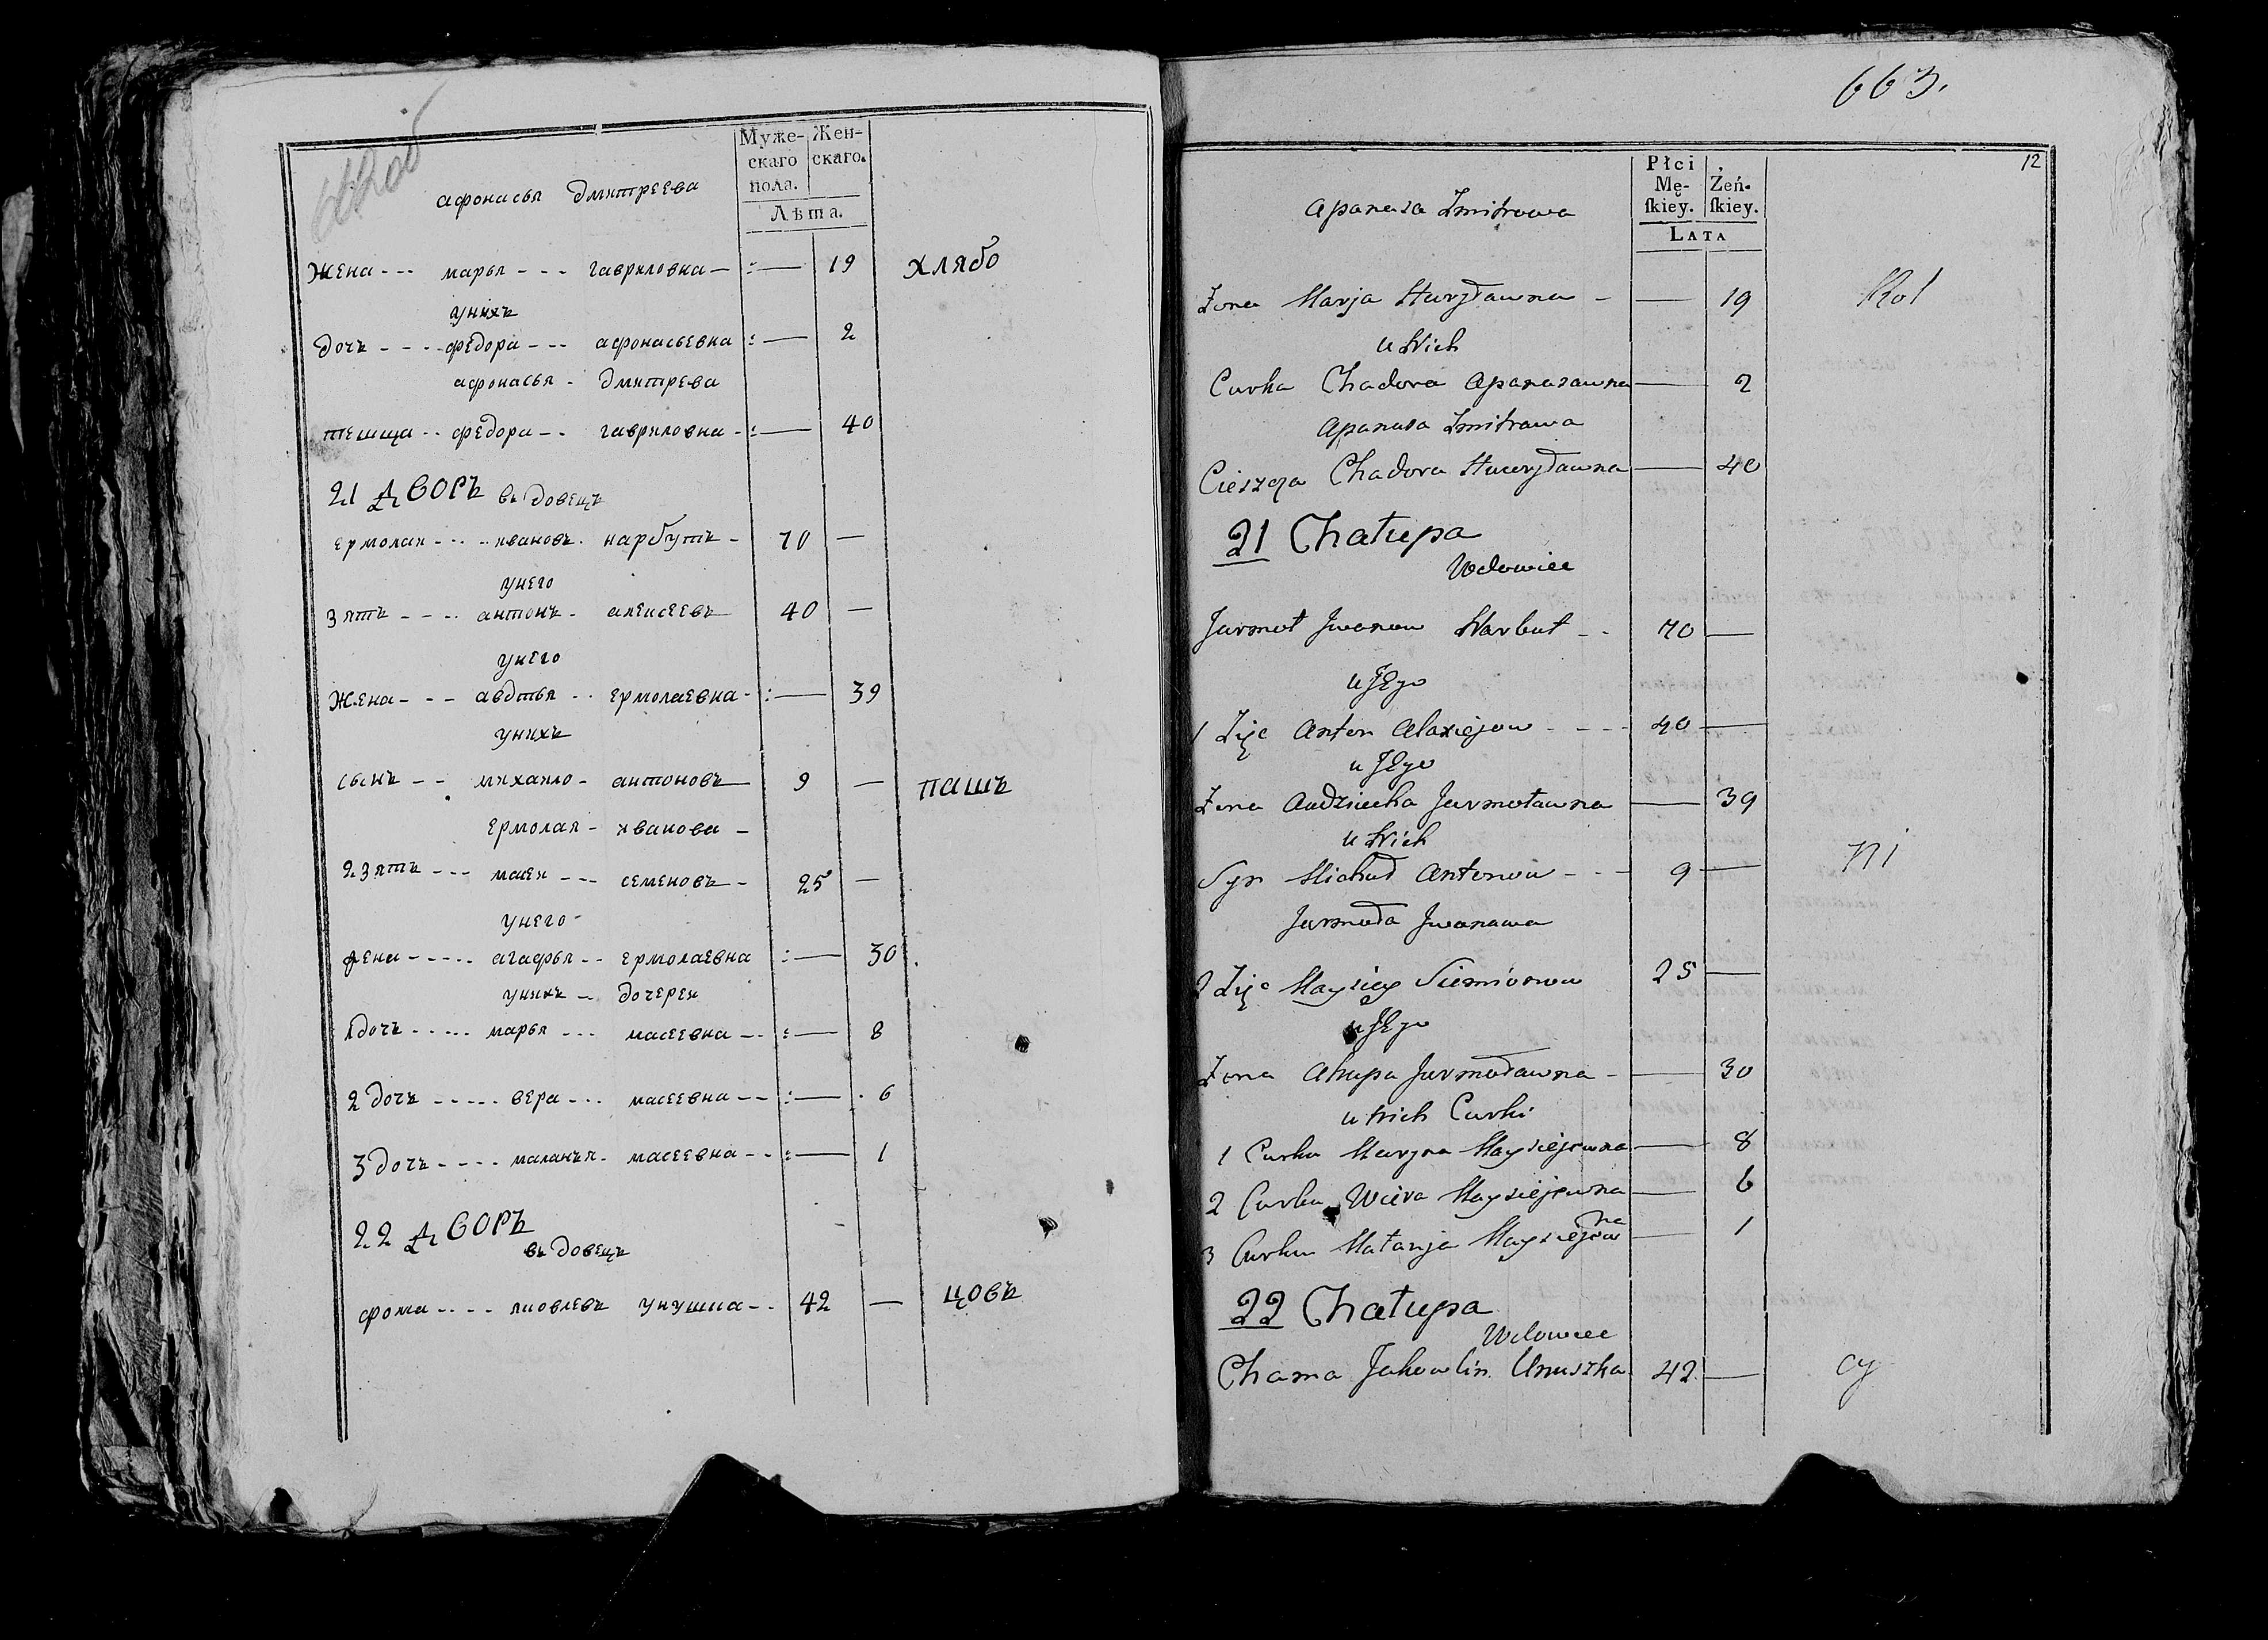 Муже-
скаго
пола.
Жен-
скаго.
Лѣта.
афонасья дмитреева
жена --- марья --- гавриловна — :— 19 хлябо
унихъ
дочь ---- федора --- афонасьевна :— 2
афонасья - дмитрева
тещща -- федора -- гавриловна - :— 40
21 дворъ въ довецъ
ермолай --- ивановъ. нарбутъ - 70 —
унего
зять ---- антонъ - алексеевъ 40 —
унего
жена --- авдтья -- ермолаевна - :— 39
унихъ
сынъ -- михаило - антоновъ — 9 — пашъ
ермолая - иванова -
2 зять --- масей --- семеновъ - 25 —
унего -
жена ----- агафья -- ермолаевна :— 30
унихъ - дочерей
1 дочь ----- марья --- масеевна -- :— 8
2 дочь ----- вера --- масеевна -- :— 6
3 дочь ---- маланья - масеевна -- :— 1
22 дворъ
въ довецъ
фома ---- яковлевъ унушка -- 42 — цовъ
663.
12
Płci
Mę-
ſkiey.
Żeń-
ſkiey.
LATA
Apanasa Zmitrowa
Żona Marja Hawryławna - — 19 Rol
u Nich
Curka Chadora Apanasawna — 2
Apanasa Zmitrawa
Cieszcza Chadora Hawryławna — 40
21 Chałupa
Wdowiec
Jarmoł Iwanow Narbut -- 70 —
u Jego
1 Zięc Anton Alaxiejow ---- 40 —
u Jego
Żona Audziucha Jarmoławna — 39
u Nich
Syn Michał Antonow --- 9 — ni
Jarmoła Iwanawa
2 Zięc Maysiey Siemionow 25 —
u Jego
Żona Ahapa Jarmoławna - — 30
u Nich Curki
1 Curka Maryna Maysiejewna — 8
2 Curka Wiera Maysiejewna — 6
3 Curka Małanja Maysiejewna — 1
22 Chałupa
Wdowiec
Chama Jakowlin Unuszka 42 — cy